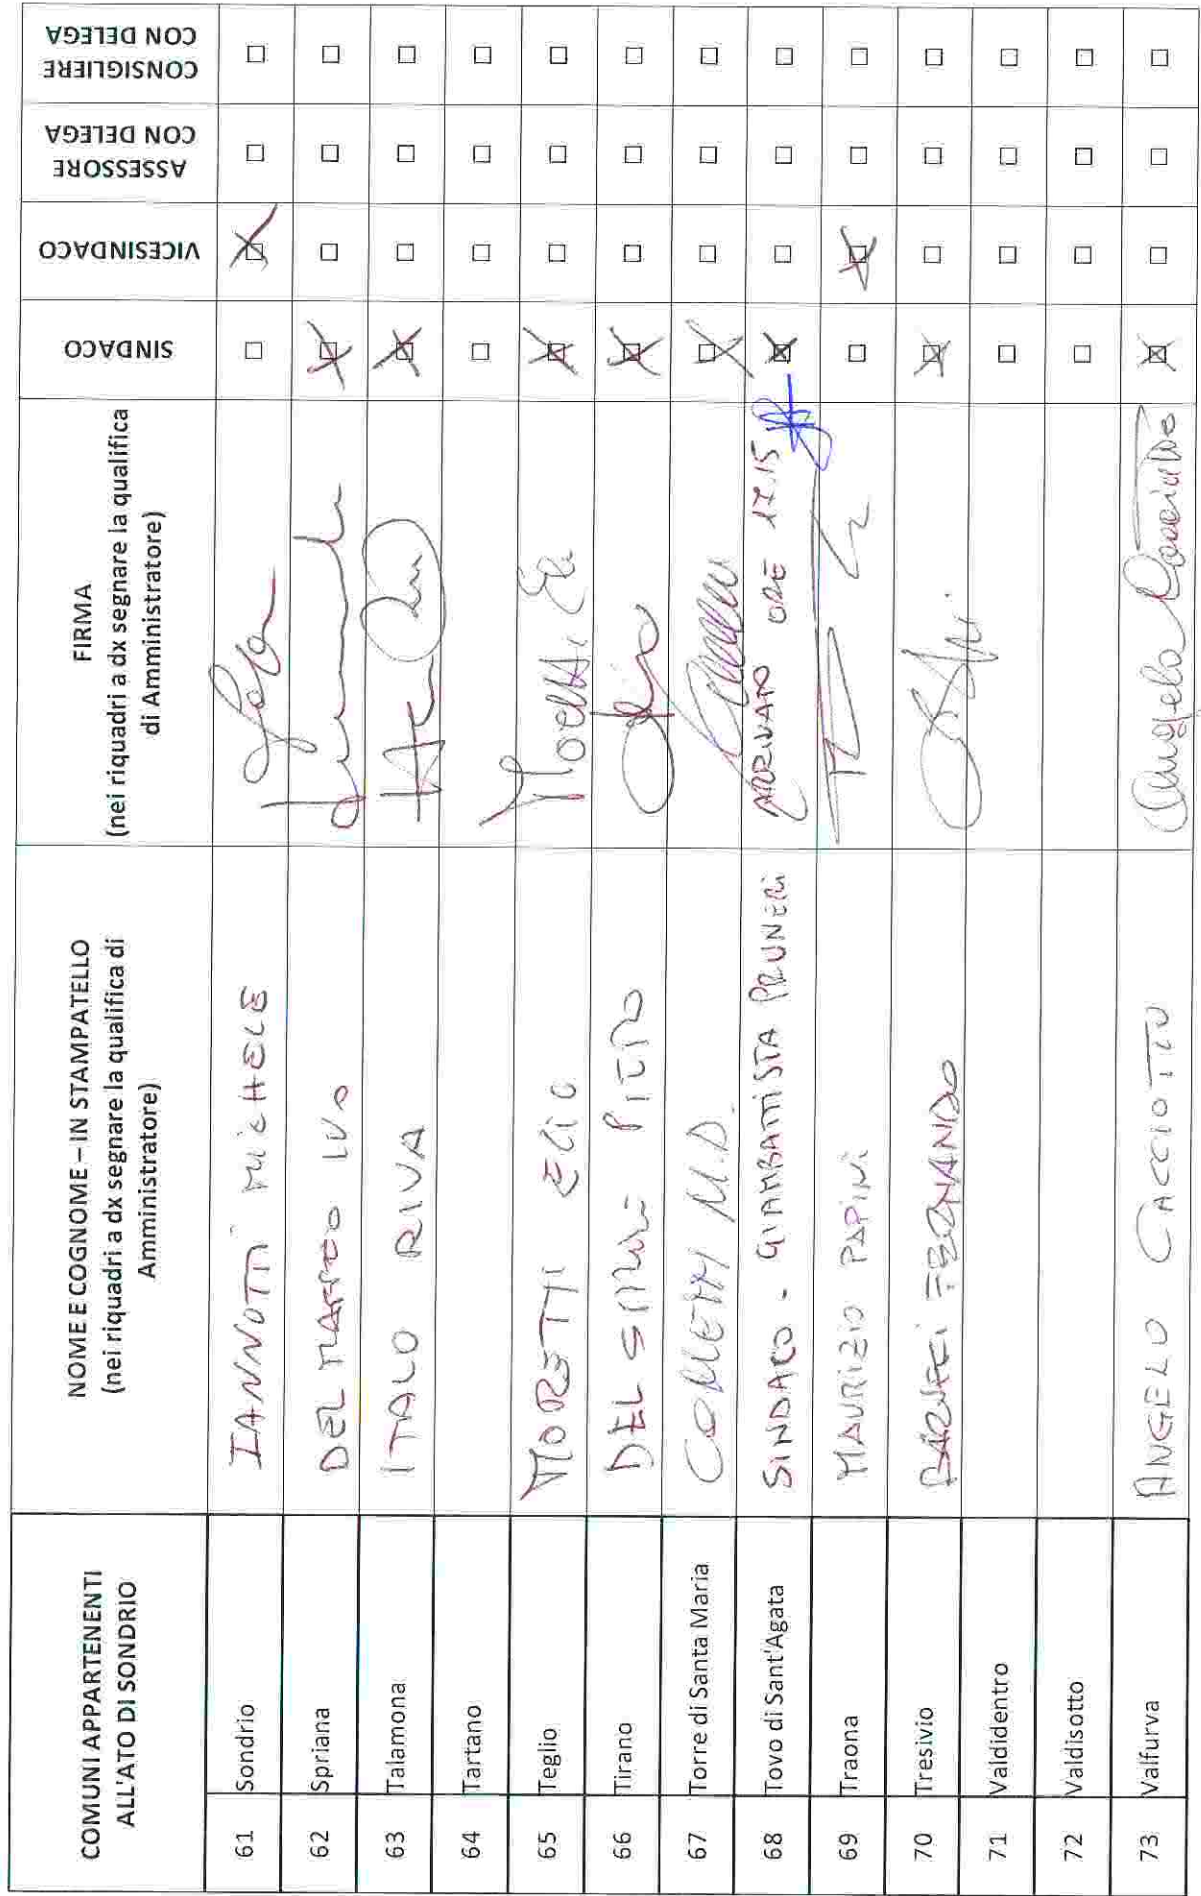 COMUNI APPARTENENTI
ALL'ATO DI SONDRIO
NOME E COGNOME – IN STAMPATELLO
(nei riquadri a dx segnare la qualifica di
Amministratore)
FIRMA
(nei riquadri a dx segnare la qualifica
di Amministratore)
SINDACO
VICESINDACO
ASSESSORE
CON DELEGA
CONSIGLIERE
CON DELEGA
61 Sondrio IANNOTTI MICHELE
62 Spriana DEL MAFFEO IVO
63 Talamona ITALO RIVA
64 Tartano
65 Teglio MORETTI ELIO Moretti Elio
66 Tirano DEL SIMONE PIETRO
67 Torre di Santa Maria COMETTI M.D.
68 Tovo di Sant'Agata SINDACO - GIAMBATTISTA PRUNERI ARRIVATO ORE 17.15
69 Traona MAURIZIO PAPINI
70 Tresivio BARUFFI FERNANDO
71 Valdidentro
72 Valdisotto
73 Valfurva ANGELO CACCIOTTO Angelo Cacciotto